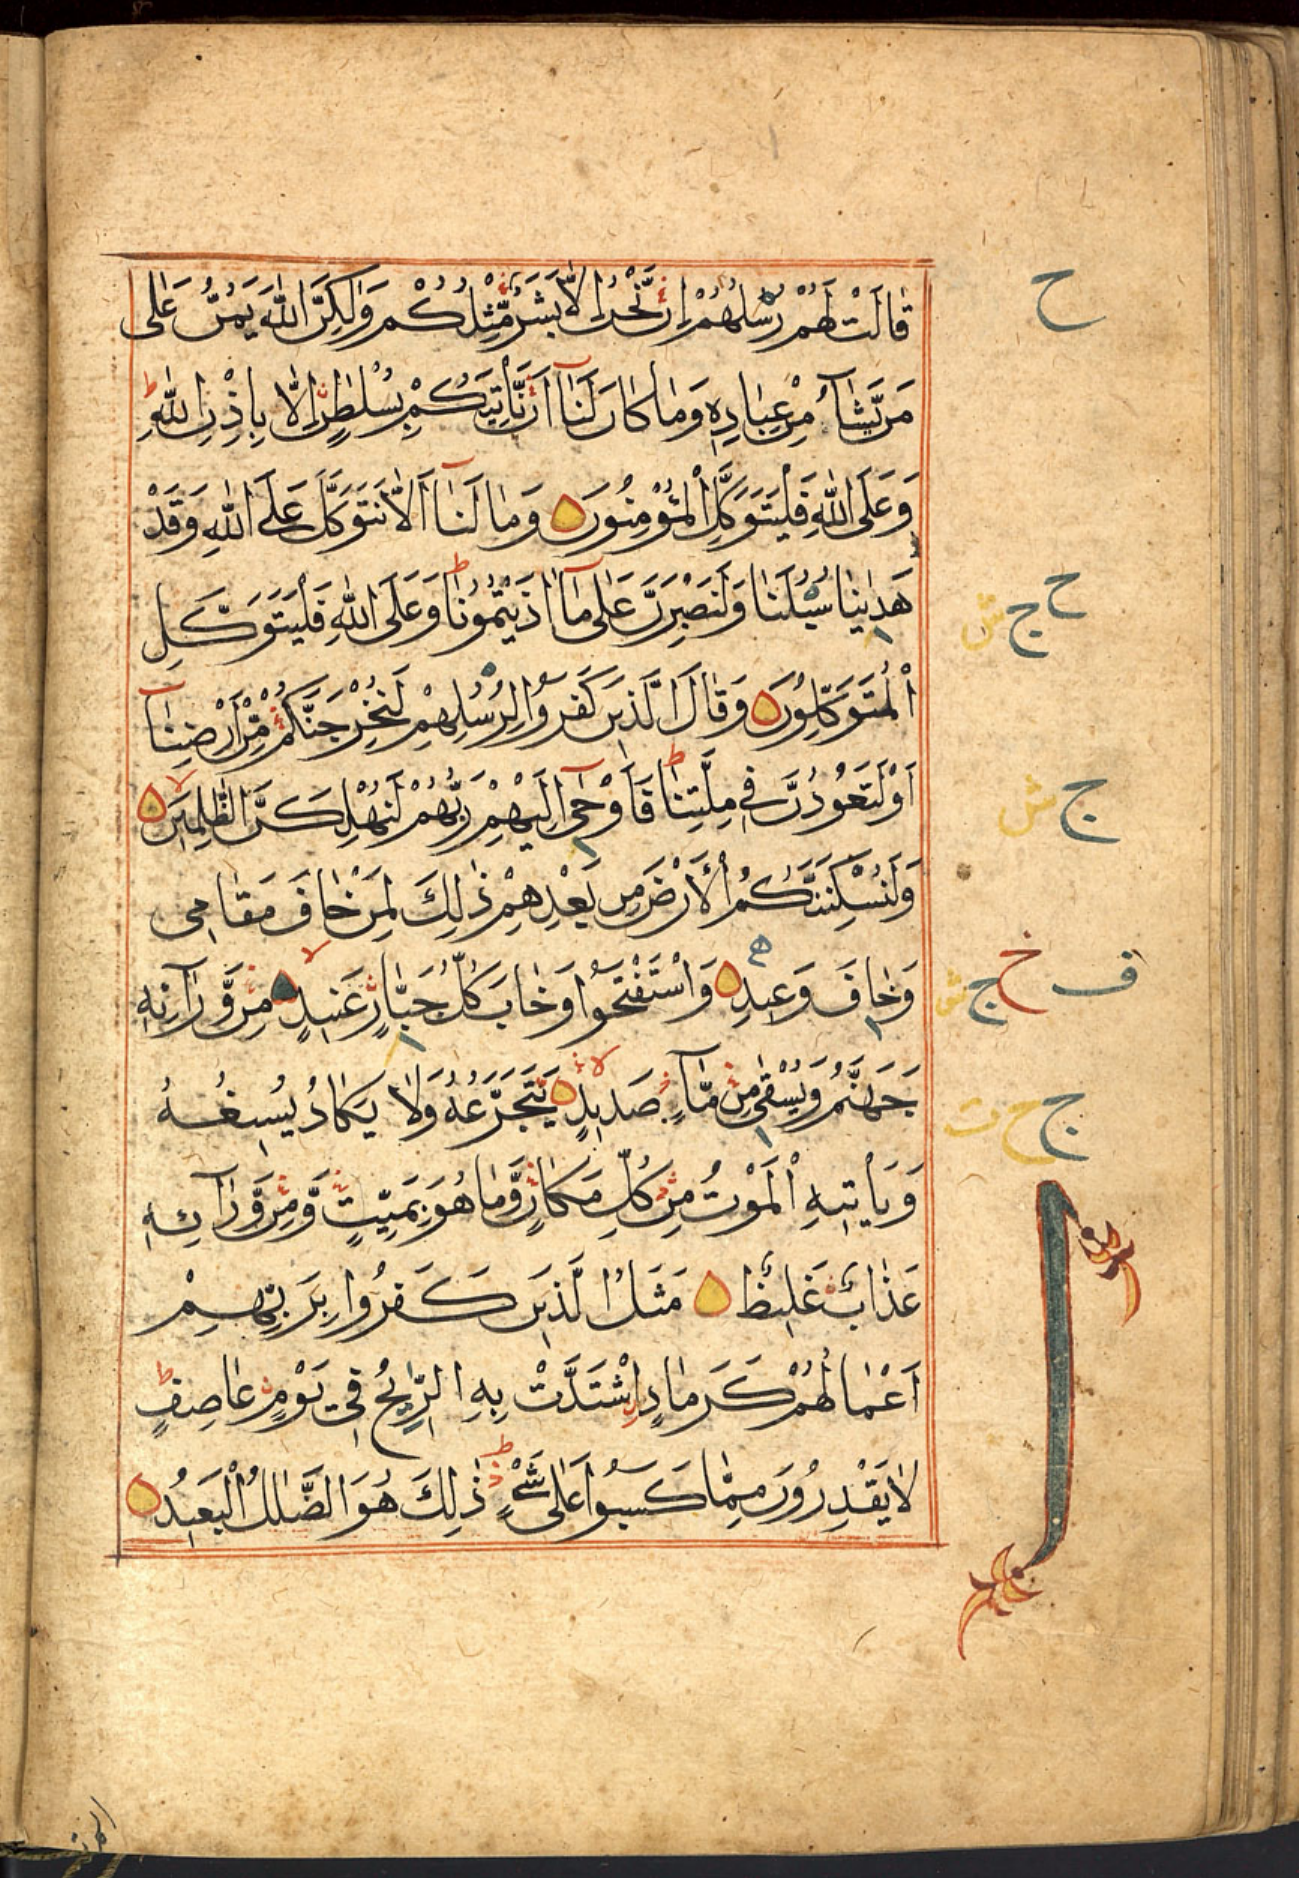 قَالَتْ لَهُمْ رُسُلُهُمْ اِنْ نَّحْنُ اِلَّا بَشَرٌ مِّثْلُكُمْ وَلٰكِنَّ اللّٰهَ يَمُنُّ عَلٰى
مَنْ يَّشَآءُ مِنْ عِبَادِهٖ وَمَا كَانَ لَنَآ اَنْ نَّاْتِيَكُمْ بِسُلْطٰنٍ اِلَّا بِاِذْنِ اللّٰهِ ط
وَعَلَى اللّٰهِ فَلْيَتَوَكَّلِ الْمُؤْمِنُوْنَ وَمَا لَنَآ اَلَّا نَتَوَكَّلَ عَلَى اللّٰهِ وَقَدْ
هَدٰىنَا سُبُلَنَا وَلَنَصْبِرَنَّ عَلٰى مَآ اٰذَيْتُمُوْنَا ط وَعَلَى اللّٰهِ فَلْيَتَوَكَّلِ
الْمُتَوَكِّلُوْنَ وَقَالَ الَّذِيْنَ كَفَرُوْا لِرُسُلِهِمْ لَنُخْرِجَنَّكُمْ مِّنْ اَرْضِنَآ
اَوْ لَتَعُوْدُنَّ فِيْ مِلَّتِنَا ط فَاَوْحٰٓى اِلَيْهِمْ رَبُّهُمْ لَنُهْلِكَنَّ الظّٰلِمِيْنَ لا
وَلَنُسْكِنَنَّكُمُ الْاَرْضَ مِنْ بَعْدِهِمْ ذٰلِكَ لِمَنْ خَافَ مَقَامِيْ
وَخَافَ وَعِيْدِ وَاسْتَفْتَحُوْا وَخَابَ كُلُّ جَبَّارٍ عَنِيْدٍ لا مِنْ وَّرَآئِهٖ
جَهَنَّمُ وَيُسْقٰى مِنْ مَّآءٍ صَدِيْدٍ لا يَّتَجَرَّعُهٗ وَلَا يَكَادُ يُسِيْغُهٗ
وَيَاْتِيْهِ الْمَوْتُ مِنْ كُلِّ مَكَانٍ وَّمَا هُوَ بِمَيِّتٍ وَّمِنْ وَّرَآئِهٖ
عَذَابٌ غَلِيْظٌ مَثَلُ الَّذِيْنَ كَفَرُوْا بِرَبِّهِمْ
اَعْمَالُهُمْ كَرَمَادِ اشْتَدَّتْ بِهِ الرِّيْحُ فِيْ يَوْمٍ عَاصِفٍ ط
لَا يَقْدِرُوْنَ مِمَّا كَسَبُوْا عَلٰى شَيْءٍ ط ذٰلِكَ هُوَ الضَّلٰلُ الْبَعِيْدُ
ح
ح ج ش
ج ش
ف خ ج ش
ج ح ت